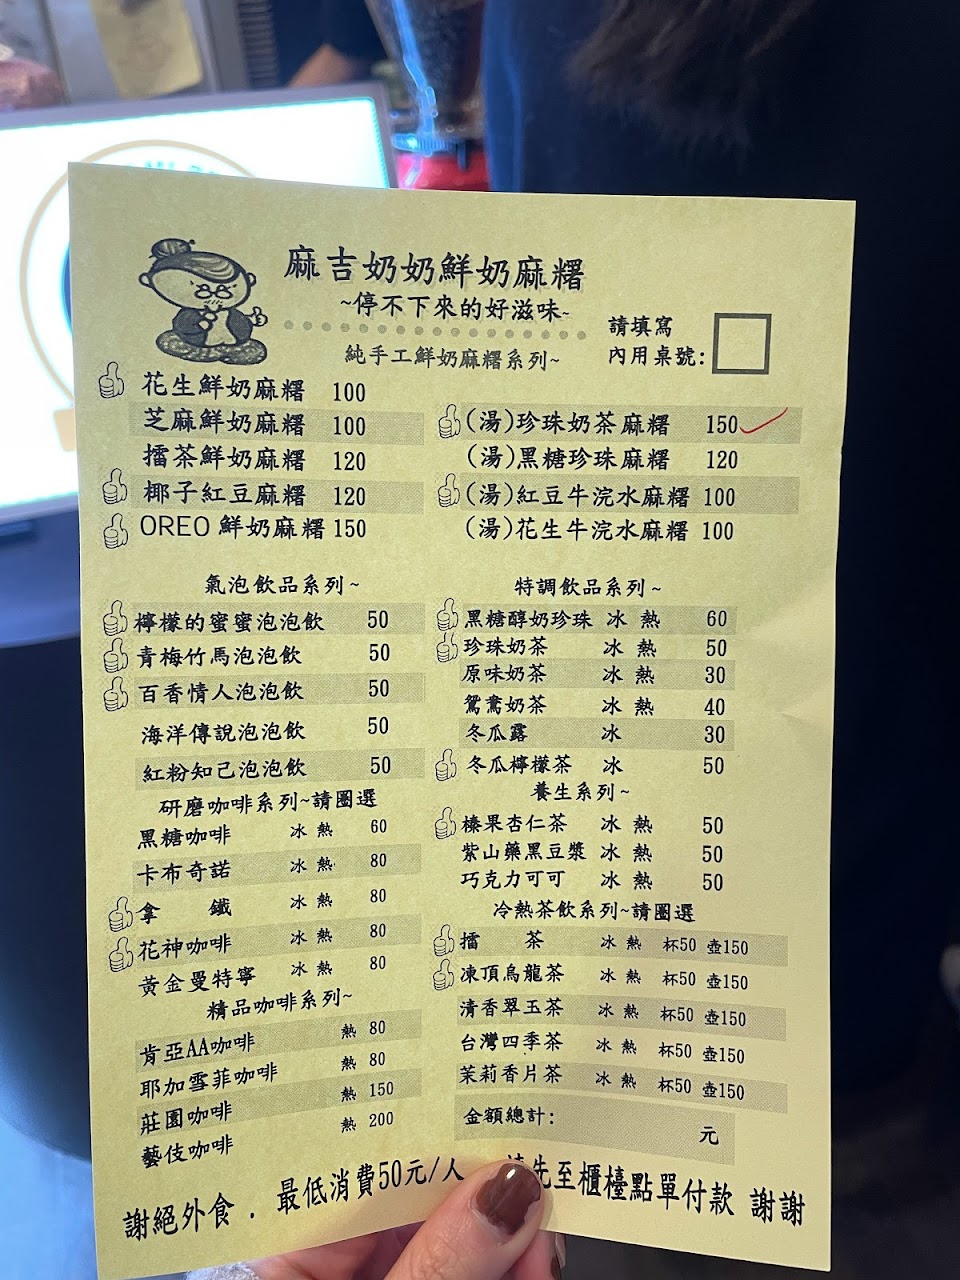 麻吉奶奶鮮奶麻糬
~停不下來的好滋味~
請填寫
內用桌號:
純手工鮮奶麻糬系列~
花生鮮奶麻糬 100
芝麻鮮奶麻糬 100
擂茶鮮奶麻糬 120
椰子紅豆麻糬 120
OREO 鮮奶麻糬 150
(湯)珍珠奶茶麻糬 150
(湯)黑糖珍珠麻糬 120
(湯)紅豆牛浣水麻糬 100
(湯)花生牛浣水麻糬 100
氣泡飲品系列~
檸檬的蜜蜜泡泡飲 50
青梅竹馬泡泡飲 50
百香情人泡泡飲 50
海洋傳說泡泡飲 50
紅粉知己泡泡飲 50
研磨咖啡系列~請圈選
黑糖咖啡 冰 熱 60
卡布奇諾 冰 熱 80
拿 鐵 冰 熱 80
花神咖啡 冰 熱 80
黃金曼特寧 冰 熱 80
精品咖啡系列~
肯亞AA咖啡 熱 80
耶加雪菲咖啡 熱 80
莊園咖啡 熱 150
藝伎咖啡 熱 200
特調飲品系列~
黑糖醇奶珍珠 冰 熱 60
珍珠奶茶 冰 熱 50
原味奶茶 冰 熱 30
鴛鴦奶茶 冰 熱 40
冬瓜露 冰 30
冬瓜檸檬茶 冰 50
養生系列~
榛果杏仁茶 冰 熱 50
紫山藥黑豆漿 冰 熱 50
巧克力可可 冰 熱 50
冷熱茶飲系列~請圈選
擂 茶 冰 熱 杯50 壺150
凍頂烏龍茶 冰 熱 杯50 壺150
清香翠玉茶 冰 熱 杯50 壺150
台灣四季茶 冰 熱 杯50 壺150
茉莉香片茶 冰 熱 杯50 壺150
金額總計: 元
謝絕外食 . 最低消費50元/人 先至櫃檯點單付款 謝謝